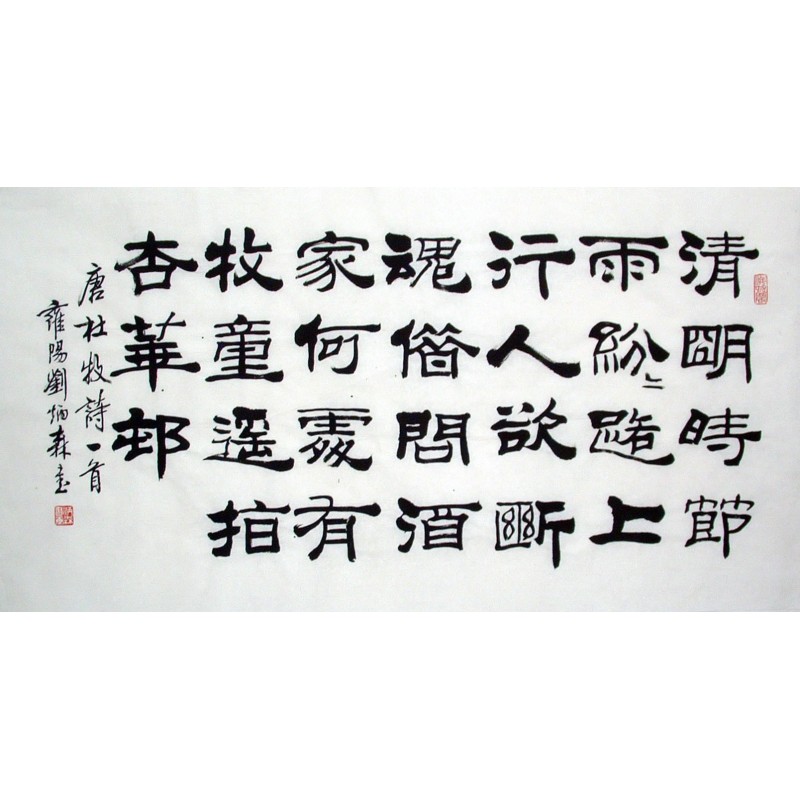 清朙時節
雨紛〻路上
行人欲斷
魂借問酒
家何處有
牧童遥指
杏華邨
唐杜牧詩一首
雍陽劉炳森書